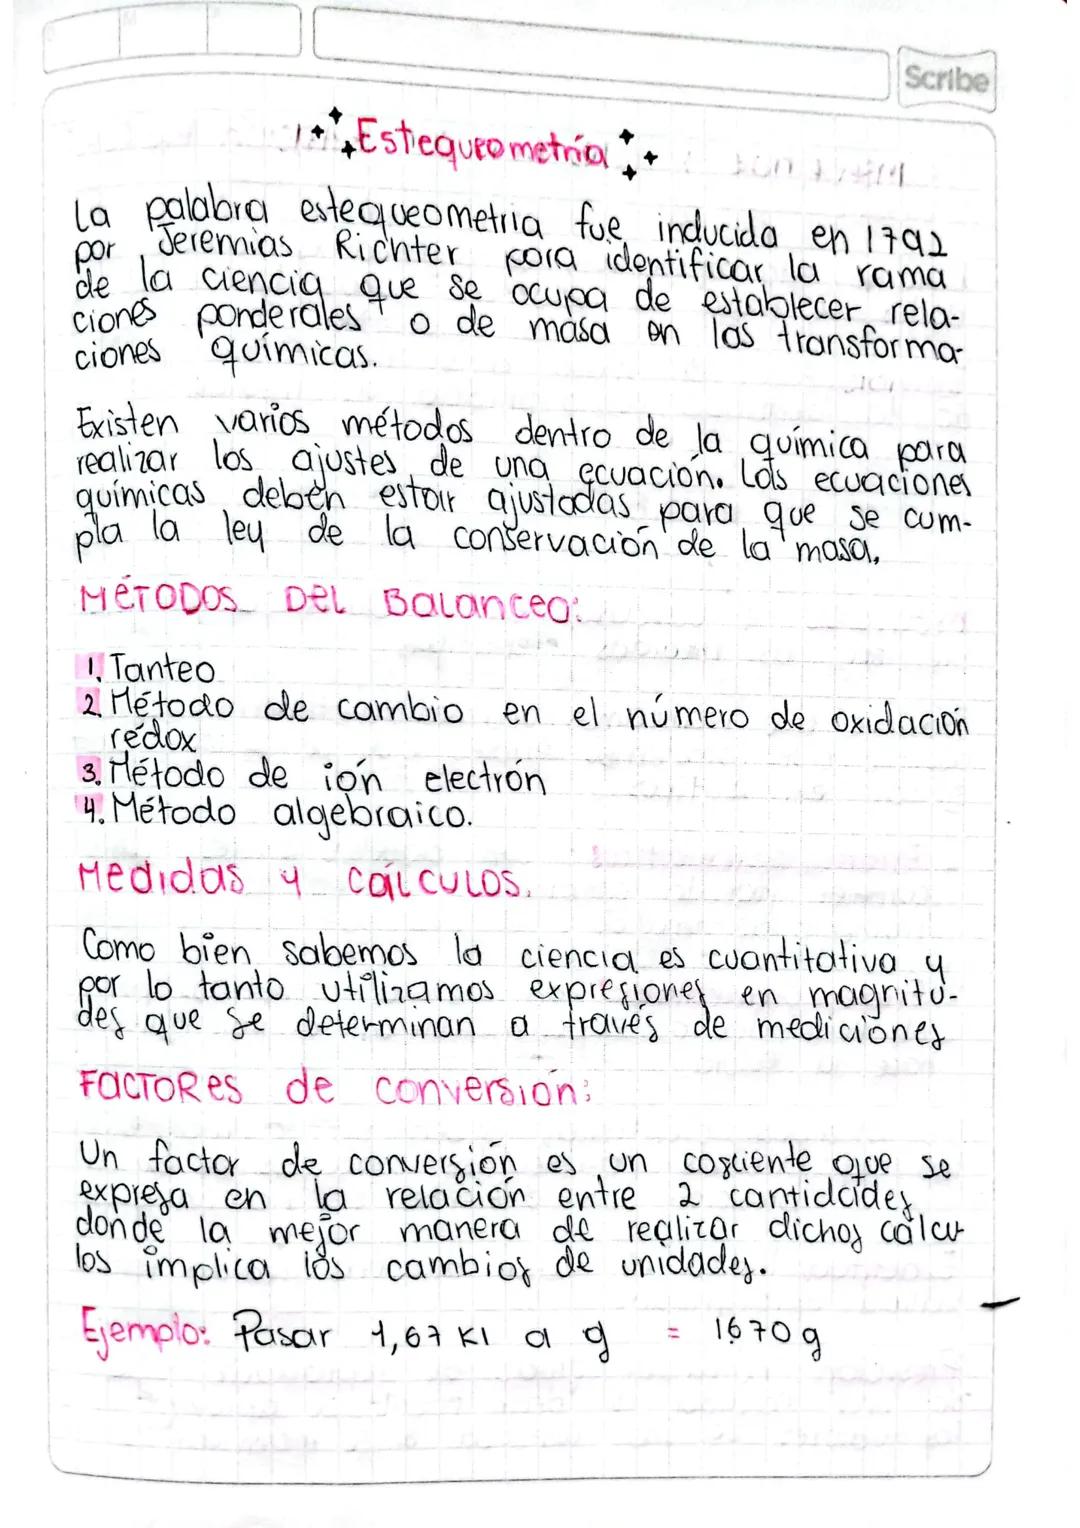 Scribe
Estequeometría
La palabra estequeometria fue inducida en 1792
por Jeremias Richter para identificar la rama
de la ciencia que se ocupa de establecer rela-
ciones ponderales o de masa en las transforma-
ciones químicas.
Existen varios métodos dentro de la química para
realizar los ajustes de una ecuación. Las ecuaciones
químicas deben estar ajustadas para que se cum-
pla la ley de la conservación de la masa.
Métodos Del Balanceo:
1. Tanteo
2 Método de cambio en el número de oxidación
redox
3. Método de ión electrón
4. Método algebraico.
Medidas y cálculos.
Como bien sabemos la ciencia es cuantitativa y
por lo tanto utilizamos expresiones en magnitu-
des que se determinan a través de mediciones
Factores de conversión:
Un factor de conversión es un cosciente que se
expresa en la relación entre 2 cantidades
donde la mejor manera de realizar dichos cálcu
los implica los cambios de unidades.
Ejemplo: Pasar 1,67 Kl a g = 1670 g